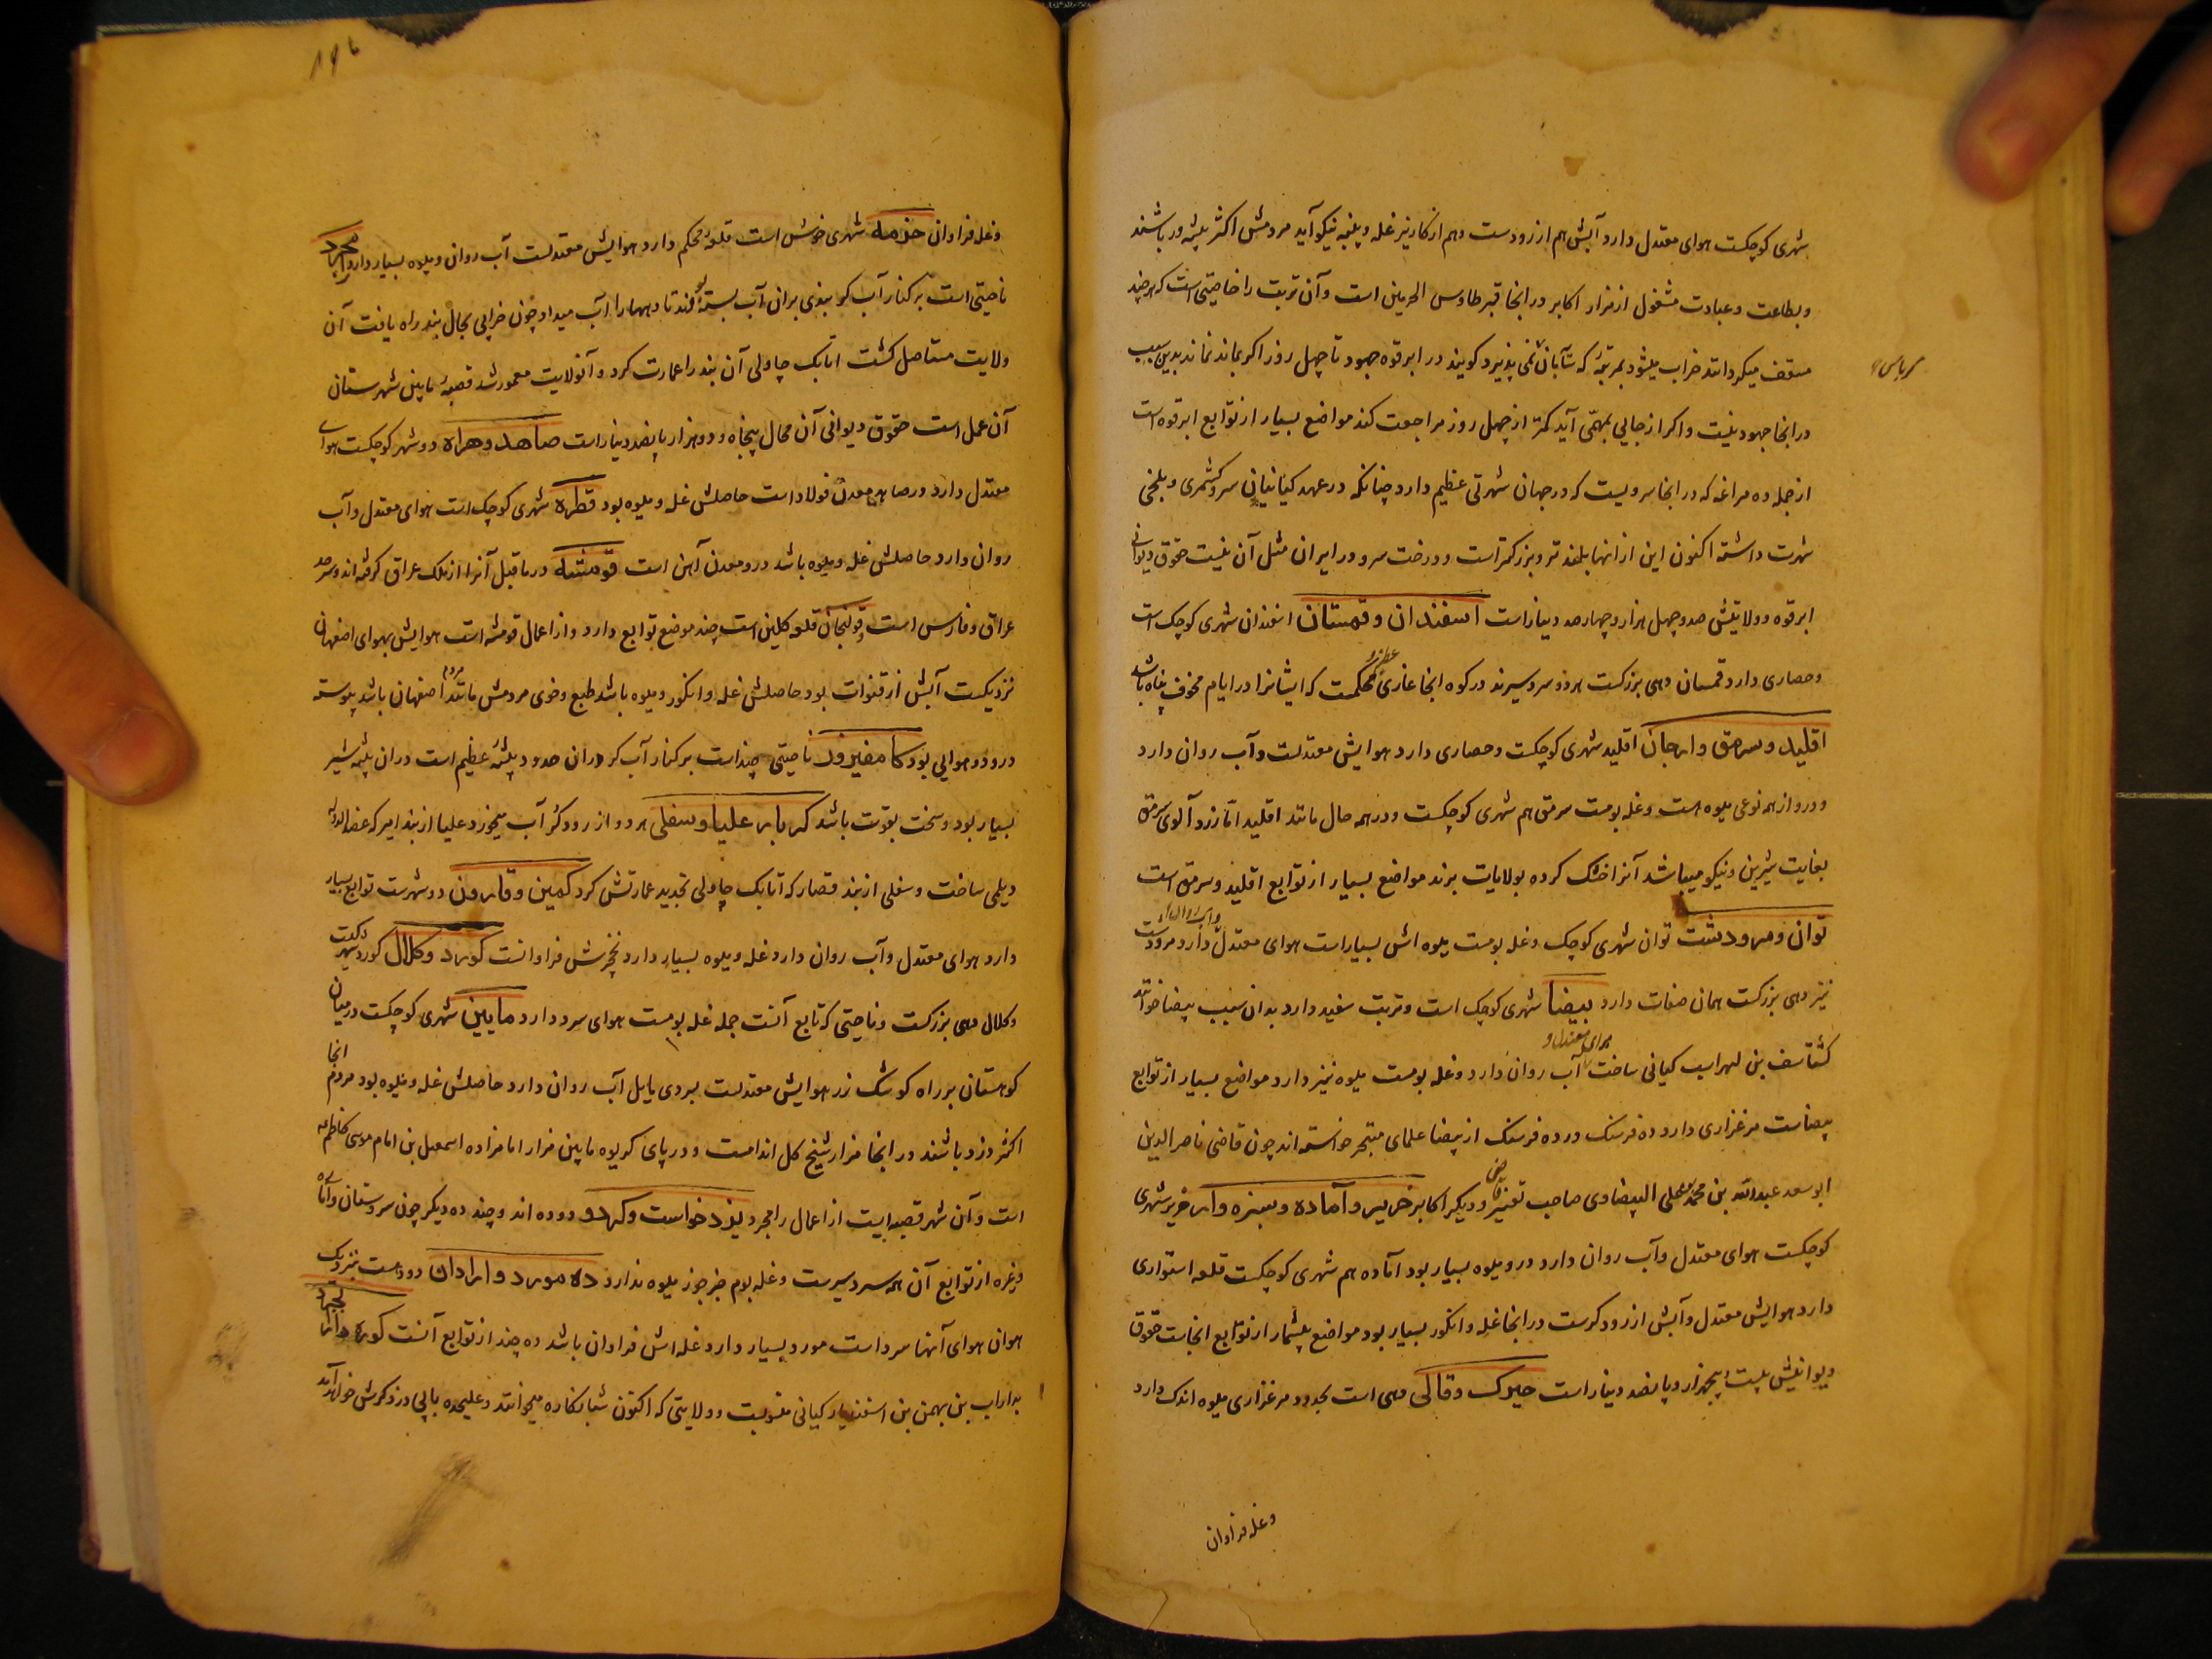 شهری کوچکست هوای معتدل دارد آبش هم از رودست و هم از کاریز غله و پنبه نیکو آید مردمش اکثر پیشه ور باشند
و بطاعت و عبادت مشغول از مزار اکابر در انجا قبر طاوس الحرمین است و آن تربت را خاصیتی است که هر چند
مسقف میکردانند خراب میشود بمرتبهٔ که سآبان نمی پذیرد کویند در ابرقوه جهود تا چهل روز اکر بماند نماند بدین سبب
در انجا جهود نیست و اکر از جایی بمهمّی آید کمتر از چهل روز مراجعت کند مواضع بسیار از توابع ابرقوه است
از جمله ده مراغه که در انجا سرویست که در جهان شهرتی عظیم دارد چنانکه در عهد کیانیان سرو کشمری و بلخی
شهرت داشته اکنون این از انها بلندتر و بزرکتر است و درخت سرو در ایران مثل آن نیست حقوق دیوانی
ابرقوه و ولایتش صد و چهل هزار و چهارصد دینار است اسفندان و قمستان اسفندان شهری کوچک است
و حصاری دارد قمستان دهی بزرکست هر دو سردسیرند در کوه انجا غاری محکمست که ایشانرا در ایام مخوف پناه باشد
اقلید و سرمق و ارجان اقلید شهری کوچکست و حصاری دارد هوایش معتدلست و آب روان دارد
و درو از همه نوعی میوه است و غله بومست سرمق هم شهری کوچکست و در همه حال مانند اقلید امّا زرد آلوی سرمق
بغایت شیرین و نیکو میباشد آنرا خشک کرده بولایات برند مواضع بسیار از توابع اقلید و سرمق است
توان و مرودشت توان شهری کوچک و غله بومست میوه اش بسیار است هوای معتدل دارد و مرودشت
نیز دهی بزرکست همان صفات دارد بیضا شهری کوچک است و تربت سفید دارد بدان سبب بیضا خوانند
کشتاسف بن لهراسب کیانی ساخت هوای معتدل و آب روان دارد و غله بومست میوه نیز دارد مواضع بسیار از توابع
بیضاست مرغزاری دارد ده فرسنک در ده فرسنک از بیضا علمای متبحر خواسته اند چون قاضی ناصر الدین
ابو سعد عبدالله بن محمد علی البیضاوی صاحب تفسیر قاضی و دیکر اکابر خریر و آماده و سبزه وار خریر شهری
کوچکست هوای معتدل و آب روان دارد درو میوه بسیار بود آماده هم شهری کوچکست قلعه استواری
دارد هوایش معتدل و آبش از رود کرست در انجا غله و انکور بسیار بود مواضع بیشمار از توابع انجاست حقوق
دیوانیش بیست و پنجهزار و پانصد دینار است حیرک و قالی دهی است بحدود مرغزاری میوه اندک دارد
و غله فراوان
و غله فراوان خرمه شهری خوش است قلعهٔ محکم دارد هوایش معتدلست آب روان و میوه بسیار دارد
ناحیتی است بر کنار آب کر بندی بران آب بسته بودند تا دیهها را آب میداد چون خرابی بحال بند راه یافت آن
ولایت مستاصل کشت اتابک چاولی آن بند را عمارت کرد و آنولایت معمور شد قصبهٔ مابین شهرستان
آن عمل است حقوق دیوانی آن محال پنجاه و دو هزار پانصد دینار است صاهه و هراه دو شهر کوچکست هوای
معتدل دارد و در صاهه معدن فولاد است حاصلش غله و میوه بود قطره شهری کوچک است هوای معتدل و آب
روان دارد حاصلش غله و میوه باشد درو معدن آهن است قومشه در ماقبل آنرا از ملک عراق کرفته اند و سرحد
عراق و فارس است و قولنجان قلعه کلین است چند موضع توابع دارد و از اعمال قومشه است هوایش بهوای اصفهان
نزدیکست آبش از قنوات بود حاصلش غله و انکور و میوه باشد طبع و خوی مردمش مانند مردم اصفهان باشد پیوسته
درو دو هوایی بود کامفیروز ناحیتی چند است بر کنار آب کر دران حدود بیشهٔ عظیم است دران بیشه شیر
بسیار بود و سخت بقوت باشد کربار علیا و سفلی هر دو از رود کر آب میخورد علیا از بند امیر که عضدالدوله
دیلمی ساخت و سفلی از بند قصار که اتابک چاولی تجدید عمارتش کرد کمین و قارون دو شهرست توابع بسیار
دارد هوای معتدل و آب روان دارد غله و میوه بسیار دارد نخچرش فراوانست کورد و کلال کورد شهر کیست
و کلال دهی بزرکست و ناحیتی که تابع آنست جمله غله بومست هوای سرد دارد مایین شهری کوچکست در میان
کوهستانی بر راه کوشک زر هوایش معتدلست بسردی مایل آب روان دارد حاصلش غله و میوه بود مردم انجا
اکثر دزد باشند در انجا مزار شیخ کل اندامست و در پای کریوه مایین مزار امامزاده اسمعیل بن امام موسی کاظم
است و آن شهر قصبه ایست از اعمال رامجرد یزدخواست و کهرد و دو ده اند و چند ده دیکر چون سروستان و آباده
و غیره از توابع آن همه سردسیرست و غله بوم جز جوز میوه ندارد ده مورد و ارادان دو دهست بنزدیک
هوان هوای آنها سرد است مورد بسیار دارد غله اش فراوان باشد ده چند از توابع آنست کوره دارابجرد
بداراب بن بهمن بن اسفندیار کیانی منسوبست و ولایتی که اکنون شبانکاره میخوانند و علیحده بابی در ذکرش خواهد آمد